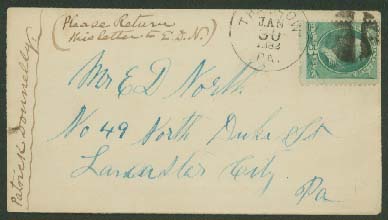 (Please Return
this letter to E.D.N.)
JAN
30
PA.
Mr E D North
No 49 North Duke St
Lancaster City.
Pa
Patrick Donnelly.